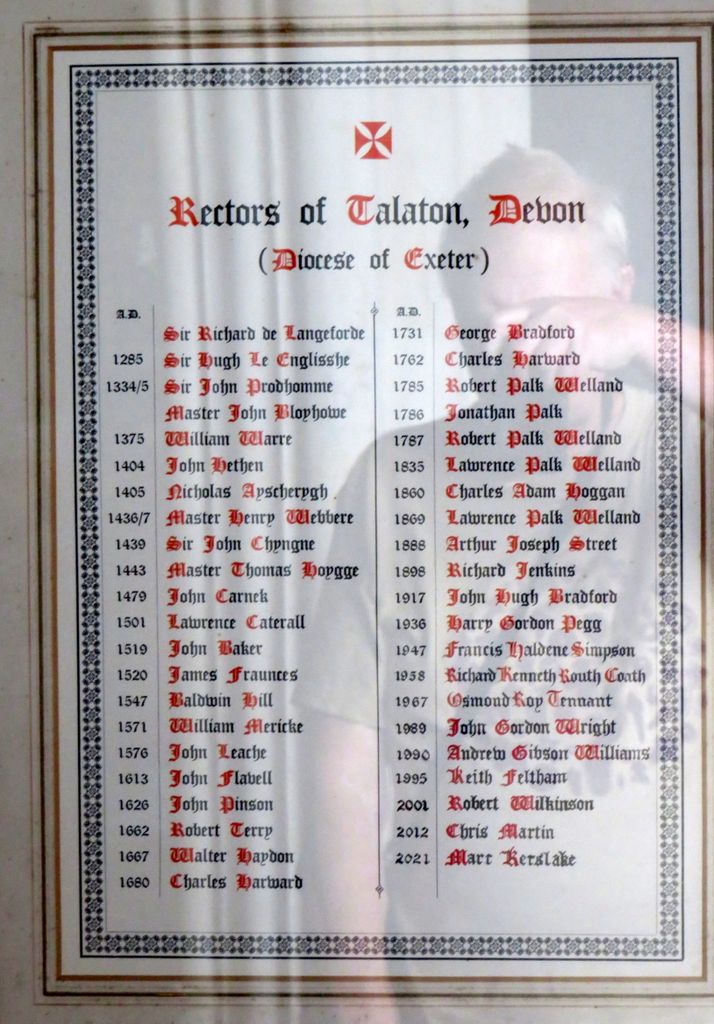 Rectors of Talaton, Devon
(Diocese of Exeter)
A.D.
Sir Richard de Langeforde
1285 Sir Hugh Le Englisshe
1334/5 Sir John Prodhomme
Master John Bloyhowe
1375 William Warre
1404 John Hethen
1405 Nicholas Ayscherygh
1436/7 Master Henry Webbere
1439 Sir John Chyngne
1443 Master Thomas Hoygge
1479 John Carnek
1501 Lawrence Caterall
1519 John Baker
1520 James Fraunces
1547 Baldwin Hill
1571 William Mericke
1576 John Leache
1613 John Flavell
1626 John Pinson
1662 Robert Terry
1667 Walter Haydon
1680 Charles Harward
A.D.
1731 George Bradford
1762 Charles Harward
1785 Robert Palk Welland
1786 Jonathan Palk
1787 Robert Palk Welland
1835 Lawrence Palk Welland
1860 Charles Adam Hoggan
1869 Lawrence Palk Welland
1888 Arthur Joseph Street
1898 Richard Jenkins
1917 John Hugh Bradford
1936 Harry Gordon Pegg
1947 Francis Haldene Simpson
1958 Richard Kenneth Routh Coath
1967 Osmond Roy Tennant
1989 John Gordon Wright
1990 Andrew Gibson Williams
1995 Keith Feltham
2001 Robert Wilkinson
2012 Chris Martin
2021 Marc Kerslake